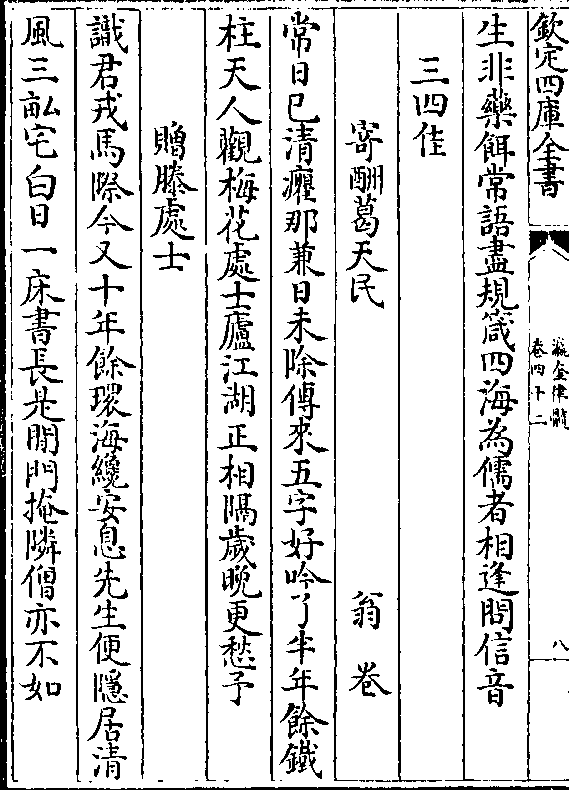 欽定四庫全書
瀛奎律髓
卷四十二
八
生非藥餌常語盡規箴四海為儒者相逢問信音
三四佳
寄酬葛天民 翁卷
常日已清癯那兼日未除傳來五字好吟了半年餘鐵
柱天人觀梅花處士廬江湖正相隔歲晚更愁予
贈滕處士
識君戎馬際今又十年餘環海纔安息先生便隱居清
風三畝宅白日一床書長是閒門掩隣僧亦不如